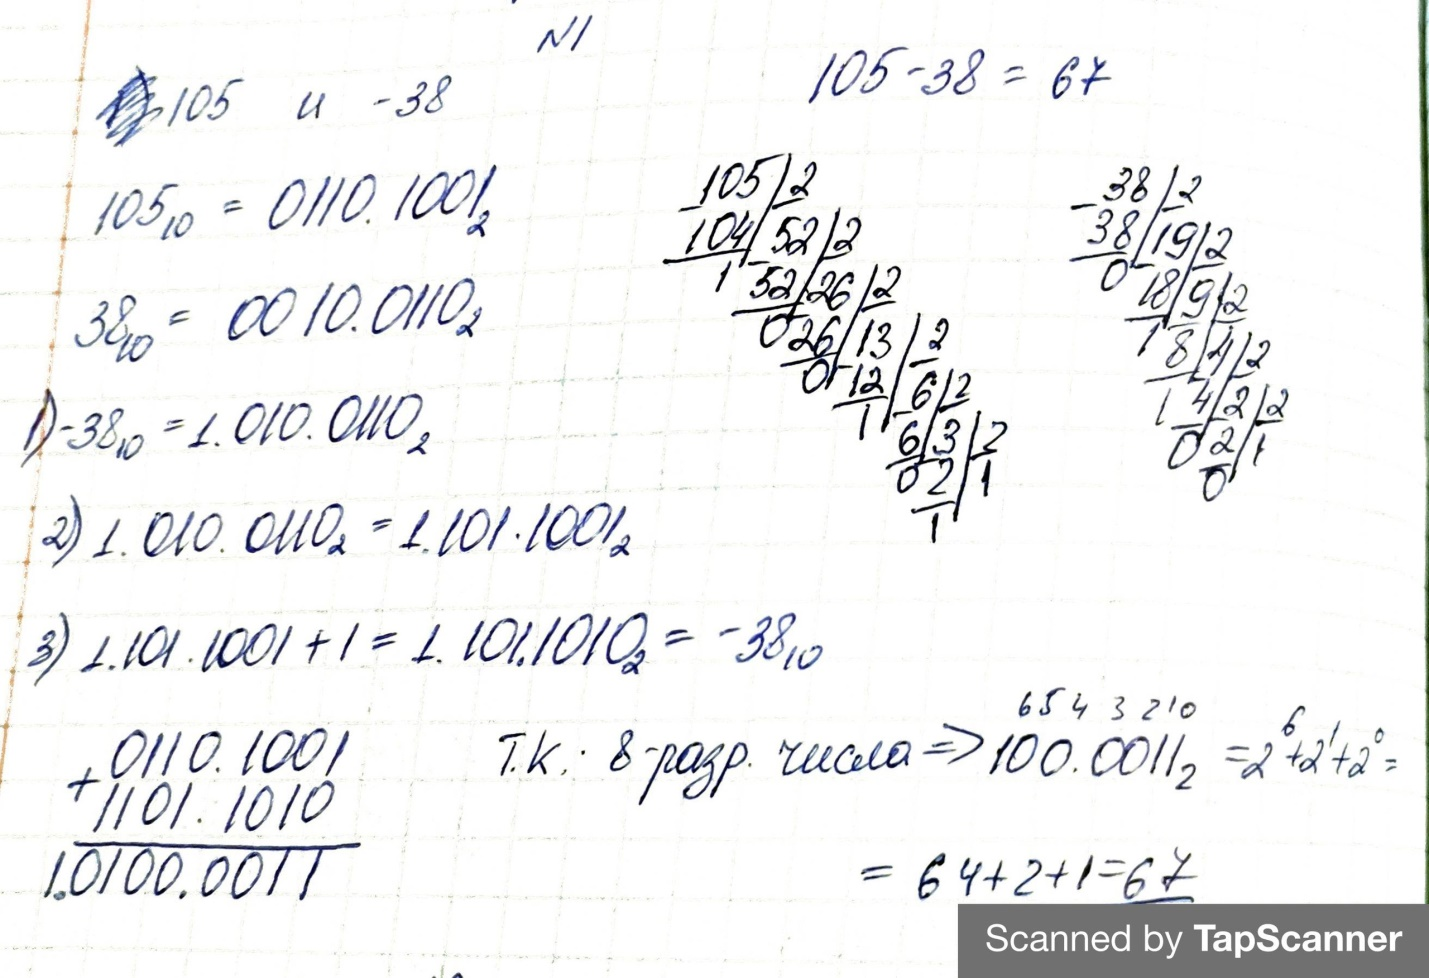 N1
105 и -38
105-38 = 67
105₁₀ = 0110.1001₂
38₁₀ = 0010.0110₂
1) -38₁₀ = 1.010.0110₂
2) 1.010.0110₂ = 1.101.1001₂
3) 1.101.1001 + 1 = 1.101.1010₂ = -38₁₀
105 2
-104 52 2
1 -52 26 2
0 26 13 2
0 -12 6 2
1 6 3 2
0 2 1
1
-38 2
38 19 2
0 -18 9 2
1 8 4 2
1 4 2 2
0 2 1
0
+0110.1001
1101.1010
1.0100.0011
6 5 4 3 2 1 0
Т.К.: 8-разр. числа => 100.0011₂ = 2⁶+2¹+2⁰ =
= 64+2+1=67
Scanned by TapScanner